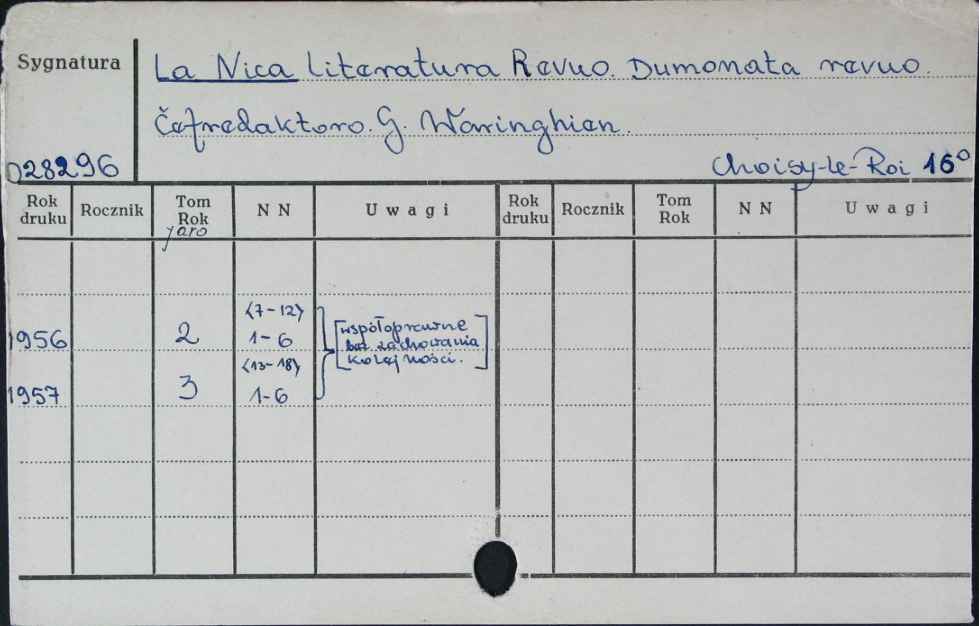 Sygnatura
La Nica Literatura Revuo. Dumonata revuo.
Ĉefredaktoro. G. Waringhien.
028296
Choisy-le-Roi 16°
Rok druku Rocznik Tom Rok N N Uwagi Rok druku Rocznik Tom Rok N N Uwagi
jaro
⟨7-12⟩
1956 2 1-6
[współoprawne
bez zachowania
kolejności.]
⟨13-18⟩
1957 3 1-6